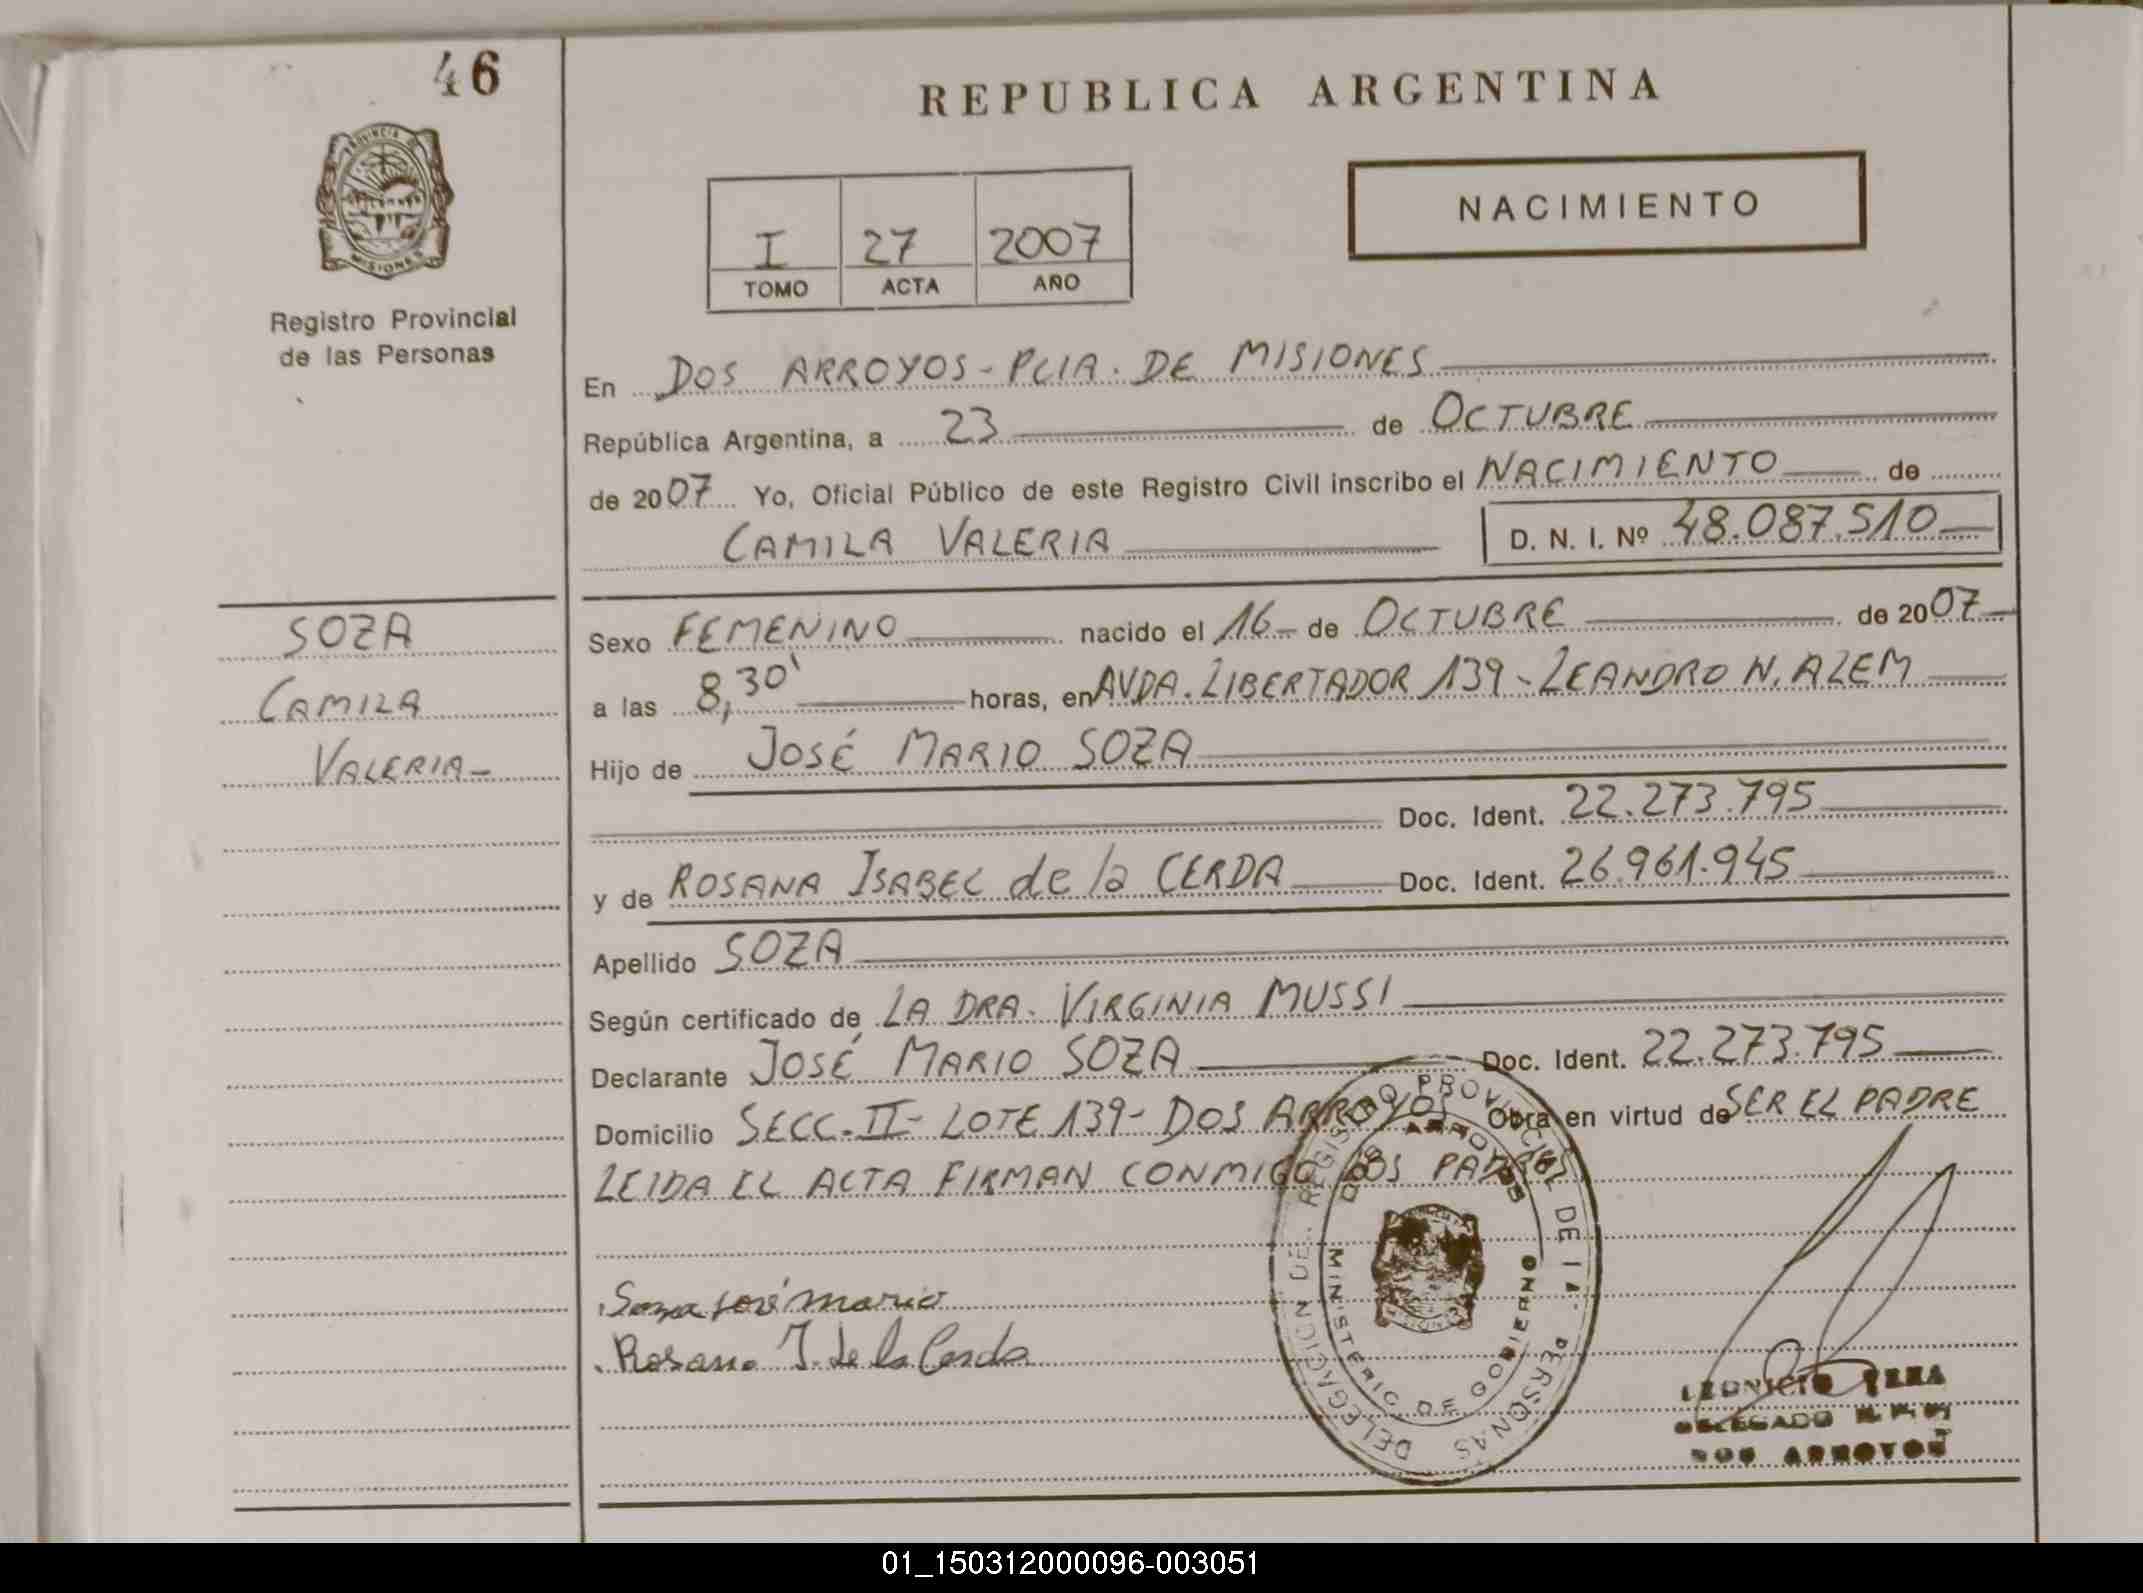 46
REPUBLICA ARGENTINA
PROVINCIA DE
MISIONES
Registro Provincial
de las Personas
I 27 2007
TOMO ACTA AÑO
NACIMIENTO
En DOS ARROYOS - PCIA. DE MISIONES
República Argentina, a 23 de OCTUBRE
de 2007 Yo, Oficial Público de este Registro Civil inscribo el NACIMIENTO de
CAMILA VALERIA D. N. I. Nº 48.087.510
SOZA
CAMILA
VALERIA
Sexo FEMENINO nacido el 16 de OCTUBRE de 2007
a las 8,30' horas, en AVDA. LIBERTADOR 139 - LEANDRO N. ALEM
Hijo de JOSÉ MARIO SOZA
Doc. Ident. 22.273.795
y de ROSANA ISABEL de la CERDA Doc. Ident. 26.961.945
Apellido SOZA
Según certificado de LA DRA. VIRGINIA MUSSI
Declarante JOSÉ MARIO SOZA Doc. Ident. 22.273.795
Domicilio SECC. II - LOTE 139 - DOS ARROYOS Obra en virtud de SER EL PADRE
LEIDA EL ACTA FIRMAN CONMIGO LOS PADRES
Soza José Mario
Rosana I. de la Cerda
DELEGACION DEL REGISTRO PROVINCIAL DE LAS PERSONAS
DOS ARROYOS
MINISTERIO DE GOBIERNO
DELEGADO R. P. P.
DOS ARROYOS
01_150312000096-003051